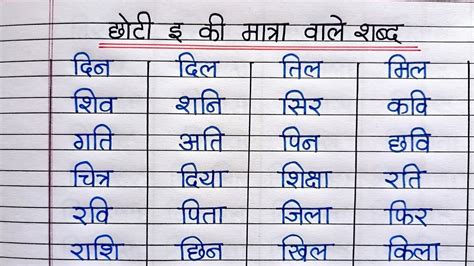 छोटी इ की मात्रा वाले शब्द
दिन दिल तिल मिल
शिव शनि सिर कवि
गति अति पिन छवि
चित्र दिया शिक्षा रति
रवि पिता जिला फिर
राशि छिन खिल किला